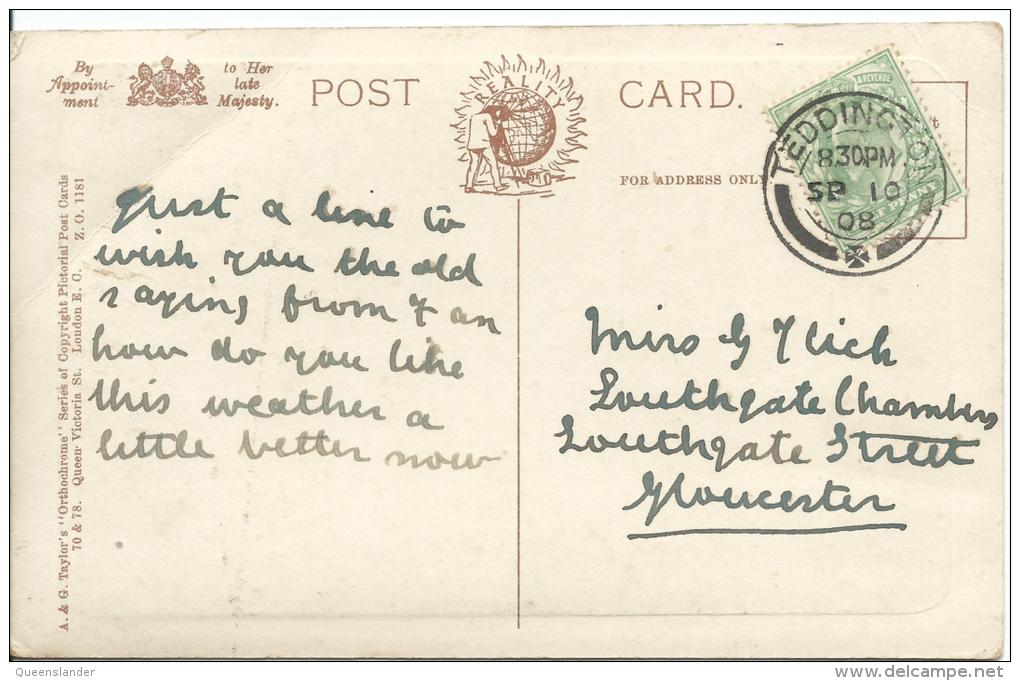 By
Appoint-
ment
to Her
late
Majesty.
POST
REALITY
CARD.
FOR ADDRESS ONLY
& REVENUE
TEDDINGTON
830PM
SP 10
08
A. & G. Taylor's "Orthochrome" Series of Copyright Pictorial Post Cards
70 & 78. Queen Victoria St. London E. C. Z. O. 1181
Just a line to
wish you the old
saying from F an
how do you like
this weather a
little better now
Miss G
Southgate Chambers
Southgate Street
Gloucester
Queenslander
www.delcampe.net